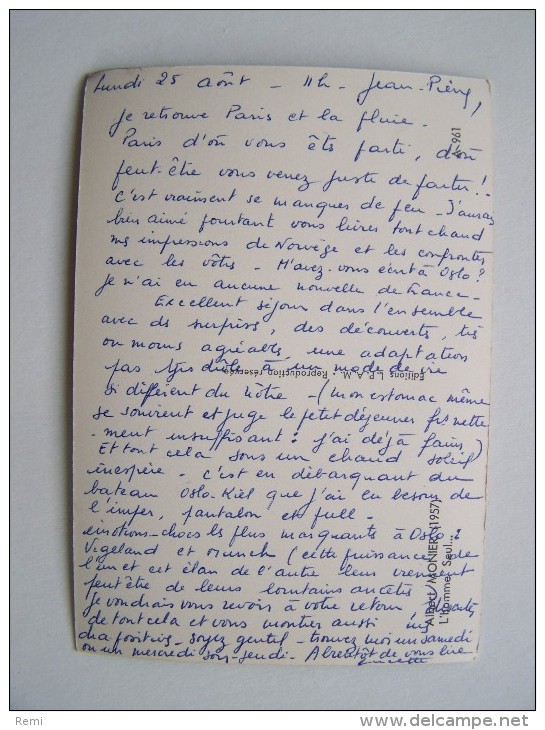 Lundi 25 août - 11h - Jean-Pierre,
Je retrouve Paris et la pluie -
Paris d'où vous êts parti, d'où
peut-être vous venez juste de partir!
C'est vraiment se manquer de peu - J'aurais
bien aimé pourtant vous livrer tout chaud
mes impressions de Norvège et les confronter
avec les vôtres - M'avez-vous écrit à Oslo?
Je n'ai eu aucune nouvelle de France -
Excellent séjour dans l'ensemble
avec ds surprises, des découverts, très
ou moins agréables, une adaptation
pas tjs drôle à un mode de vie
si différent du nôtre - (mon estomac même
se souvient et juge le petit déjeuner frs nette
-ment insuffisant : j'ai déjà faim)
Et tout cela sous un chaud soleil
inespéré - c'est en débarquant du
bateau Oslo-Kiel que j'ai eu besoin de
l'imper, pantalon et pull -
émotions-chocs les plus marquants à Oslo :
Vigeland et Munch (cette puissance de
l'un et cet élan de l'autre leur viennent
peut être de leurs lointains ancêtres
Je voudrais vous revoir à votre retour,
de tout cela et vous montrer aussi mes
diapositives - soyez gentil - trouvez moi un samedi
ou un mercredi soir - jeudi - A bientôt de vous lire
K 961
Editions L.P.A.M. - Reproduction réservée
Albert MONIER (1957)
L'homme Seul...
Remi
http://www.delcampe.net